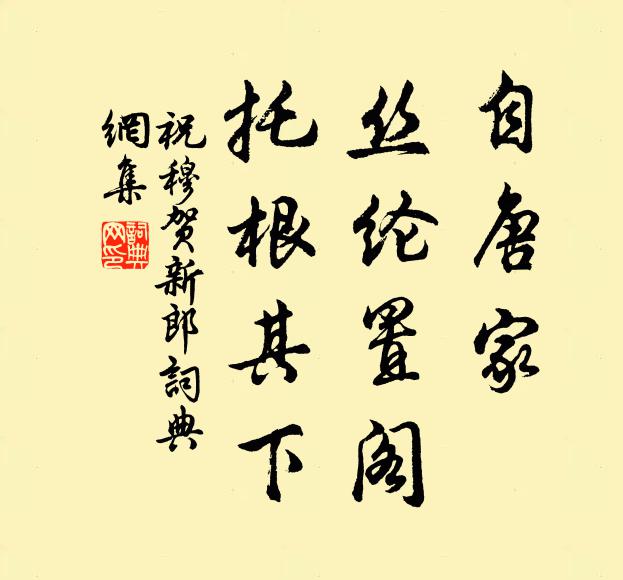 自唐家
丝纶置阁
托根其下
祝穆贺新郎词典
網集
詞典
网印